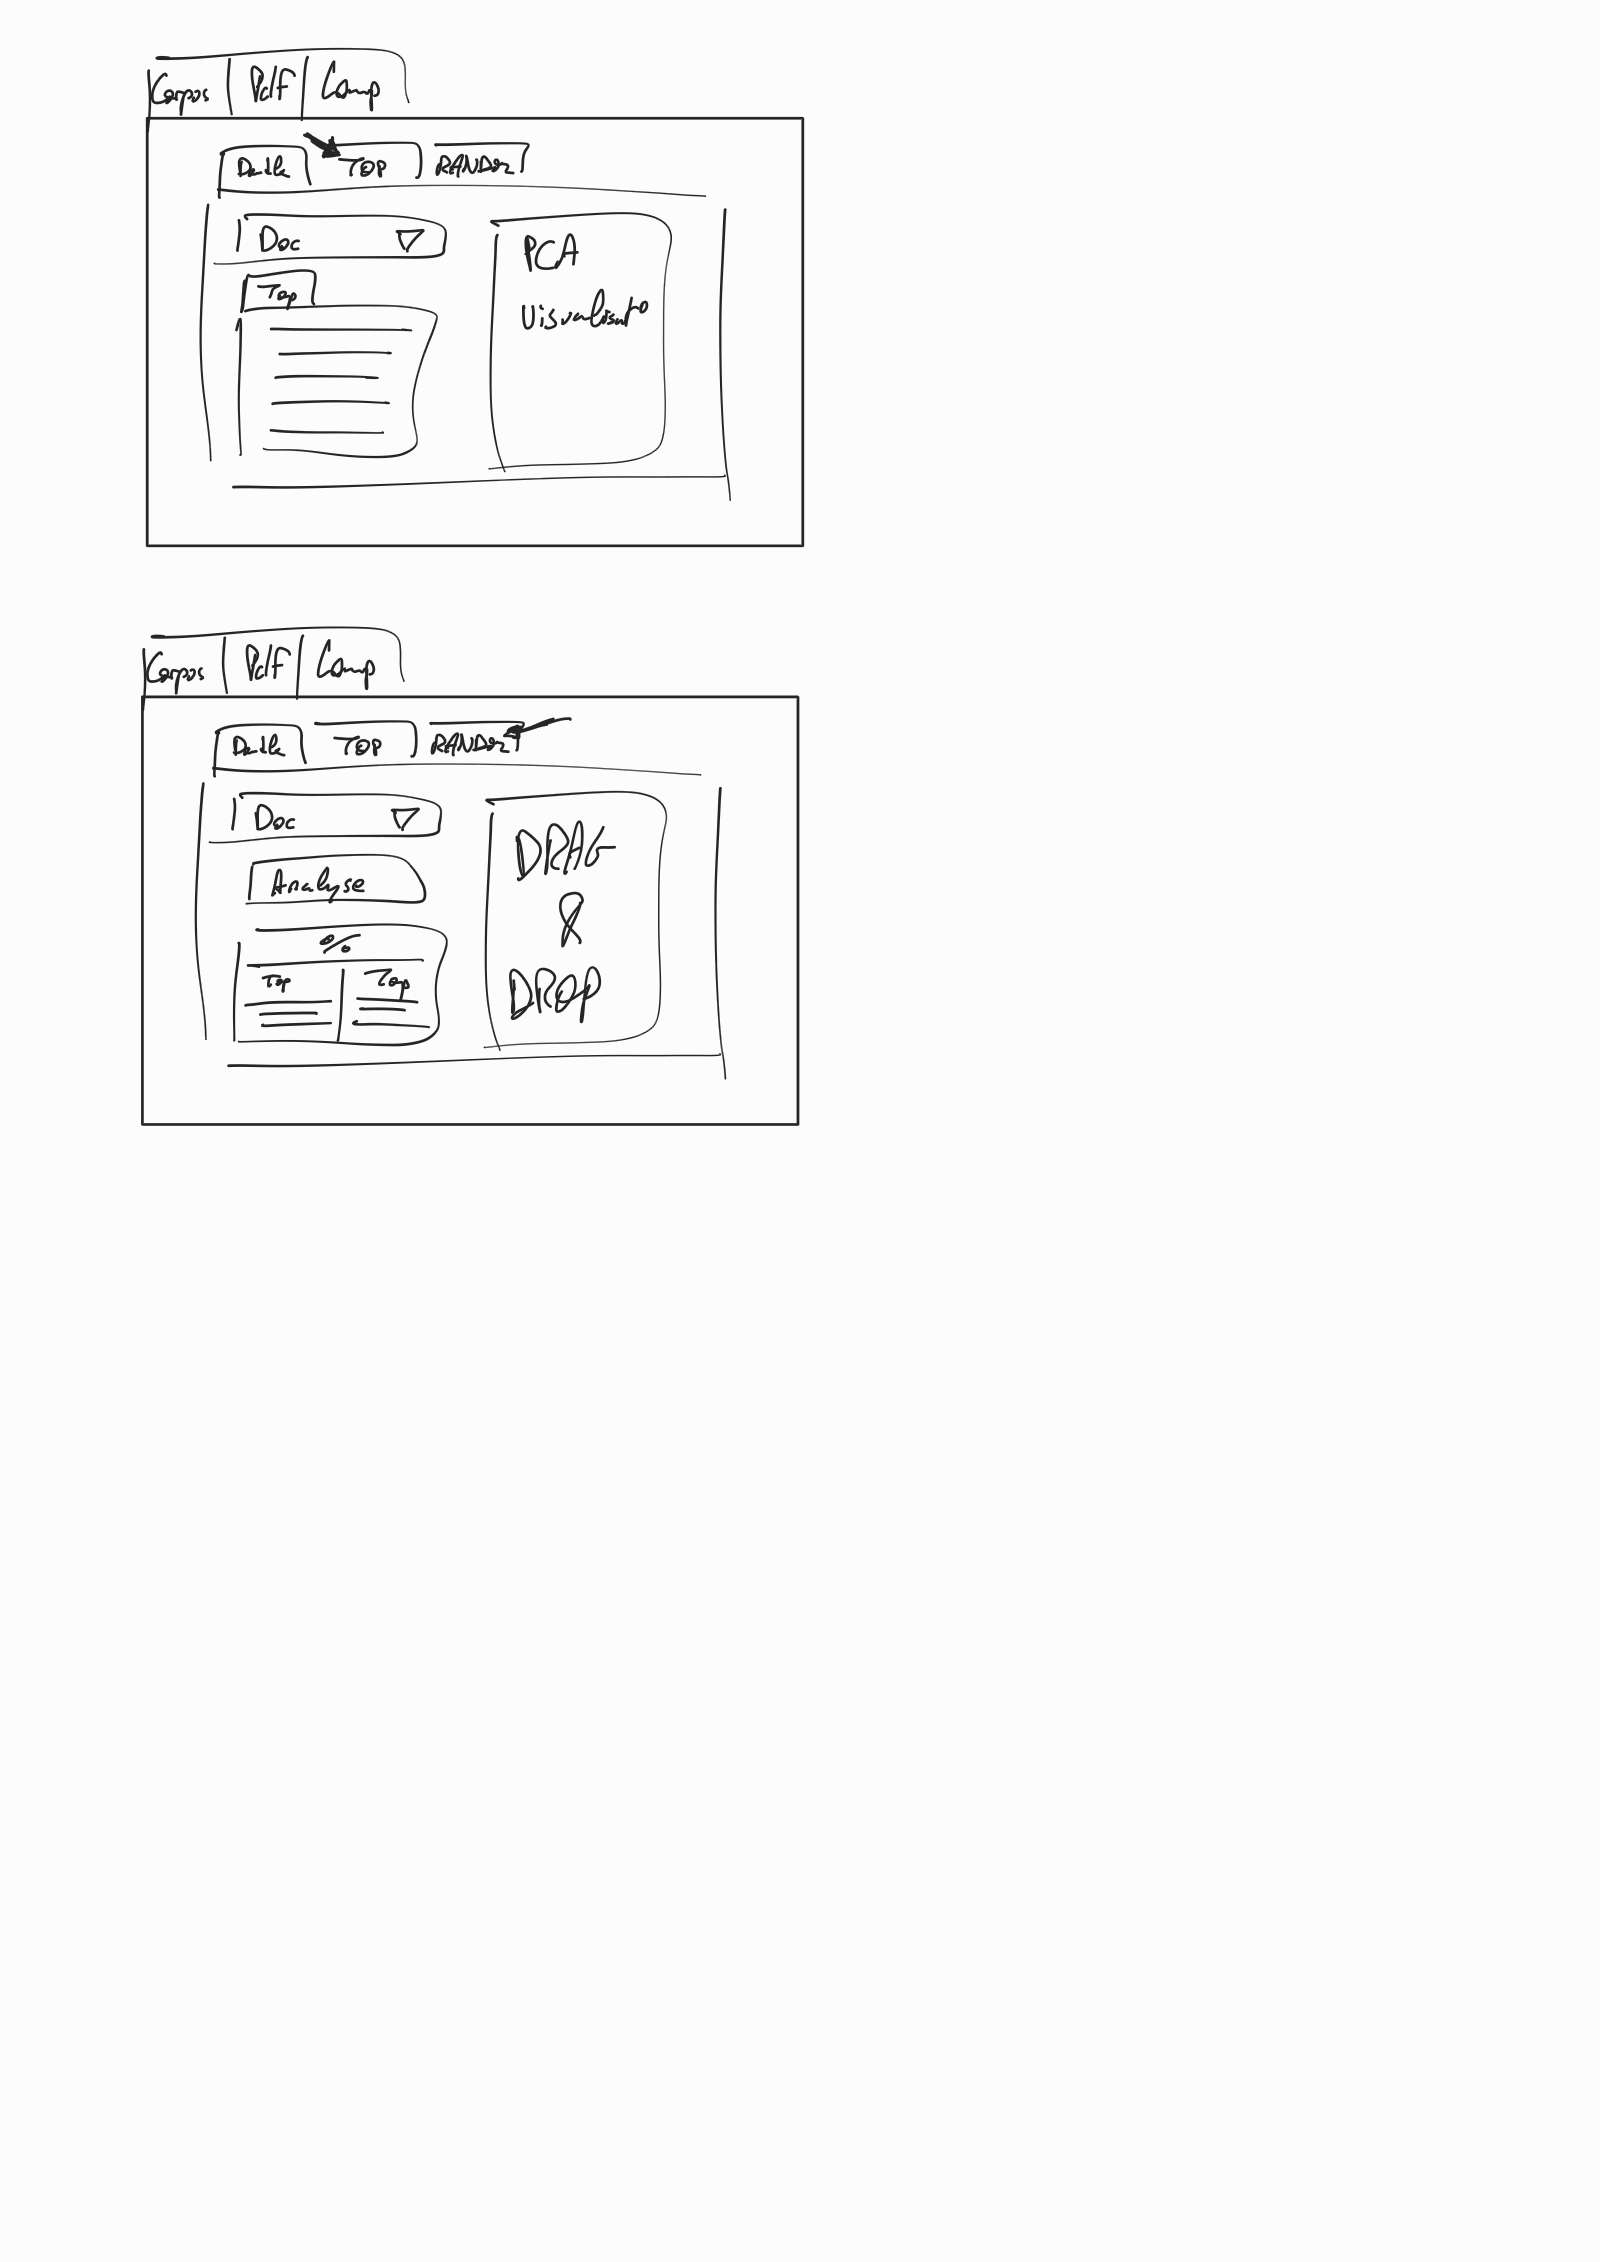 Corpos Pc/F Comp
TOP RANDom
Doc
Top
PCA
Visualisato
Corpos Pc/F Comp
TOP RANDom
Doc
Analyse
%
Top Top
DRAG
&
DROP